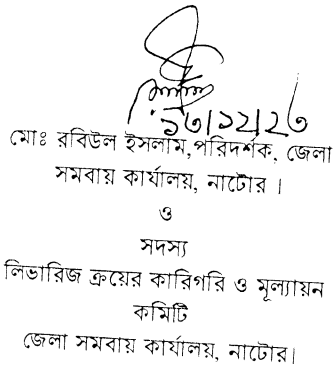 ১৩/১২/২৩
মোঃ রবিউল ইসলাম,পরিদর্শক, জেলা
সমবায় কার্যালয়, নাটোর ।
ও
সদস্য
লিভারিজ ক্রয়ের কারিগরি ও মূল্যায়ন
কমিটি
জেলা সমবায় কার্যালয়, নাটোর।